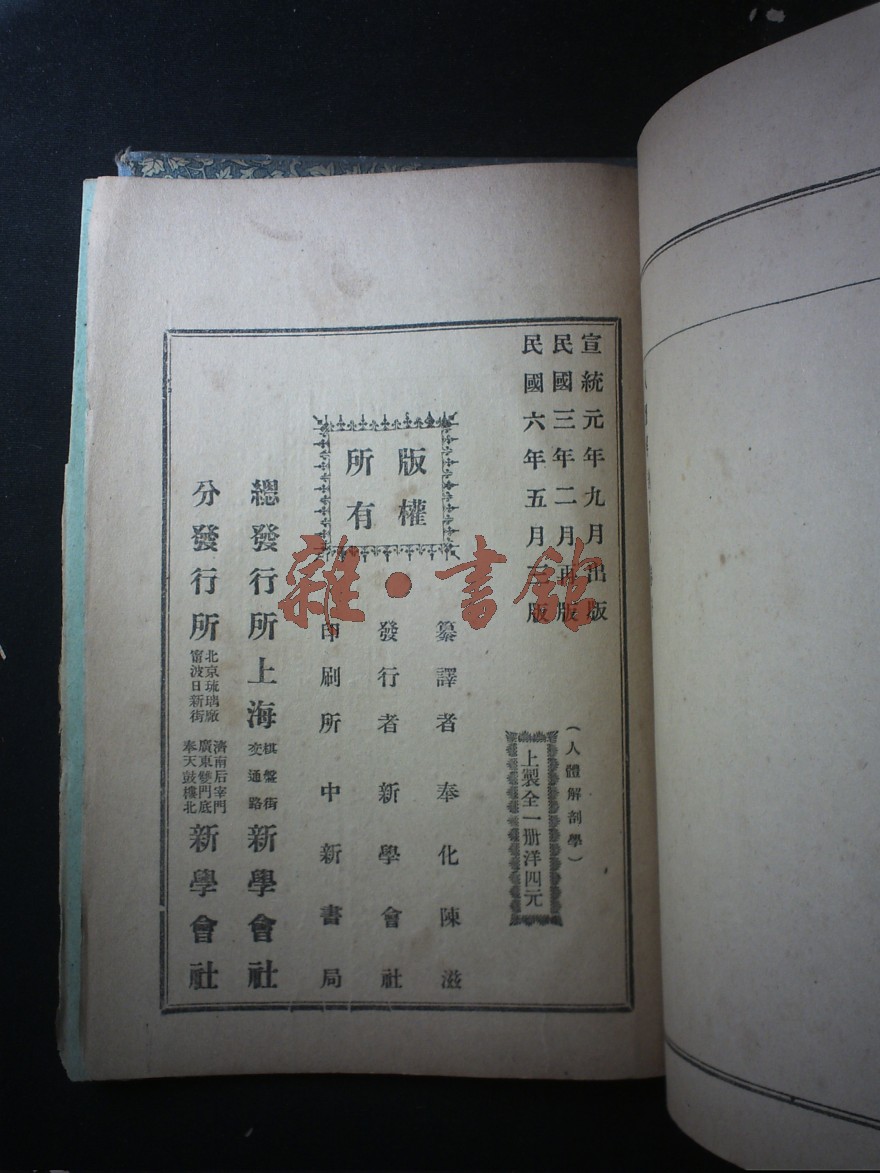 宣統元年九月出版
民國三年二月再版
民國六年五月三版
(人體解剖學)
上製全一册洋四元
版權
所有
纂譯者奉化陳滋
發行者新學會社
印刷所中新書局
總發行所上海棋盤街交通路新學會社
分發行所北京琉璃廠甯波日新街濟南后宰門廣東雙門底奉天鼓樓北新學會社
雜·書館